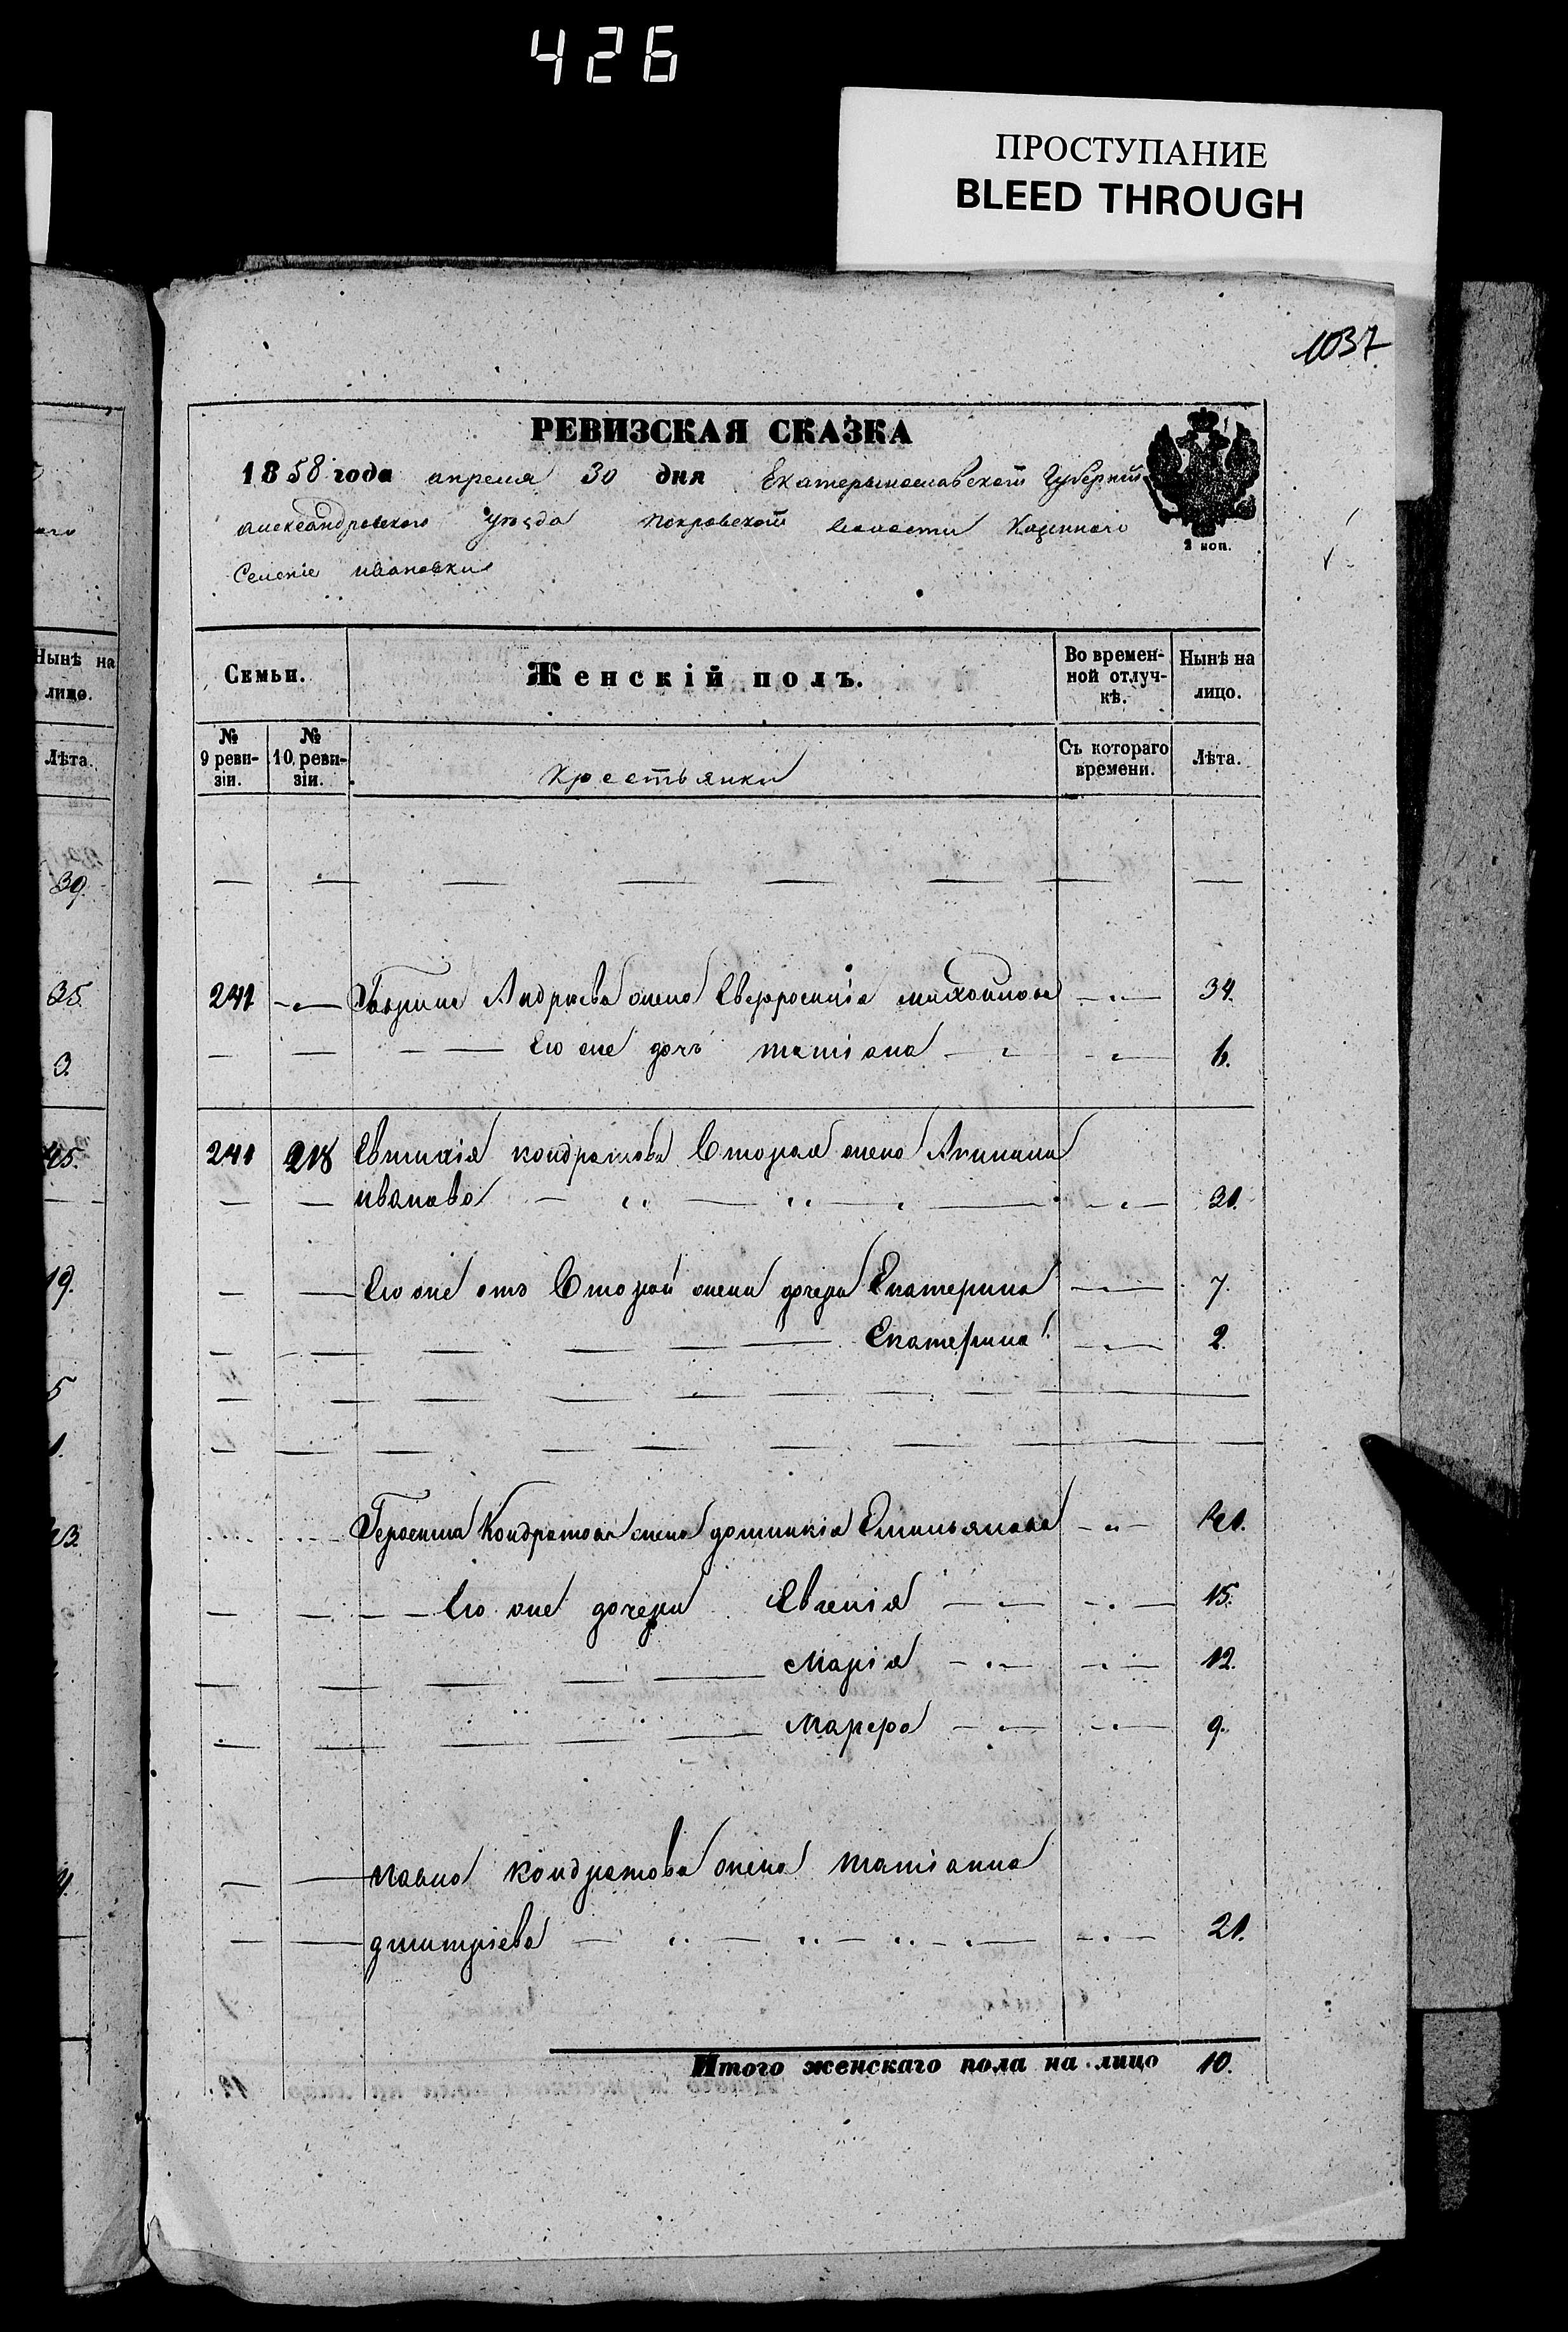 426
ПРОСТУПАНИЕ
BLEED THROUGH
1037
РЕВИЗСКАЯ СКАЗКА
1858 года апреля 30 дня Екатеринославской Губернии
александровского уезда покровской волости Казенного
Селение ивановки
2 коп.
Семьи. Женскій полъ. Во времен-ной отлуч-кѣ. Нынѣ на лицо.
№ 9 реви-зіи. № 10 реви-зіи. крестьянки Съ котораго времени. Лѣта.
241 Андреева жена Евфросинія михайлова 34.
Его же дочь татіана 6.
241 218 Евтихія кондратова Вторая жена Акилина
иванова 31.
Его же отъ Второй жены дочери Екатерина 7.
Екатерина 2.
Кондратова жена домникія Емильянова 41.
Его же дочери Евгенія 15.
Марія 12.
Марфа 9.
кондратова жена татіанна
дмитріева 21.
Итого женскаго пола на лицо 10.
Нынѣ на
лицо.
Лѣта.
39.
35.
3.
45.
19.
5